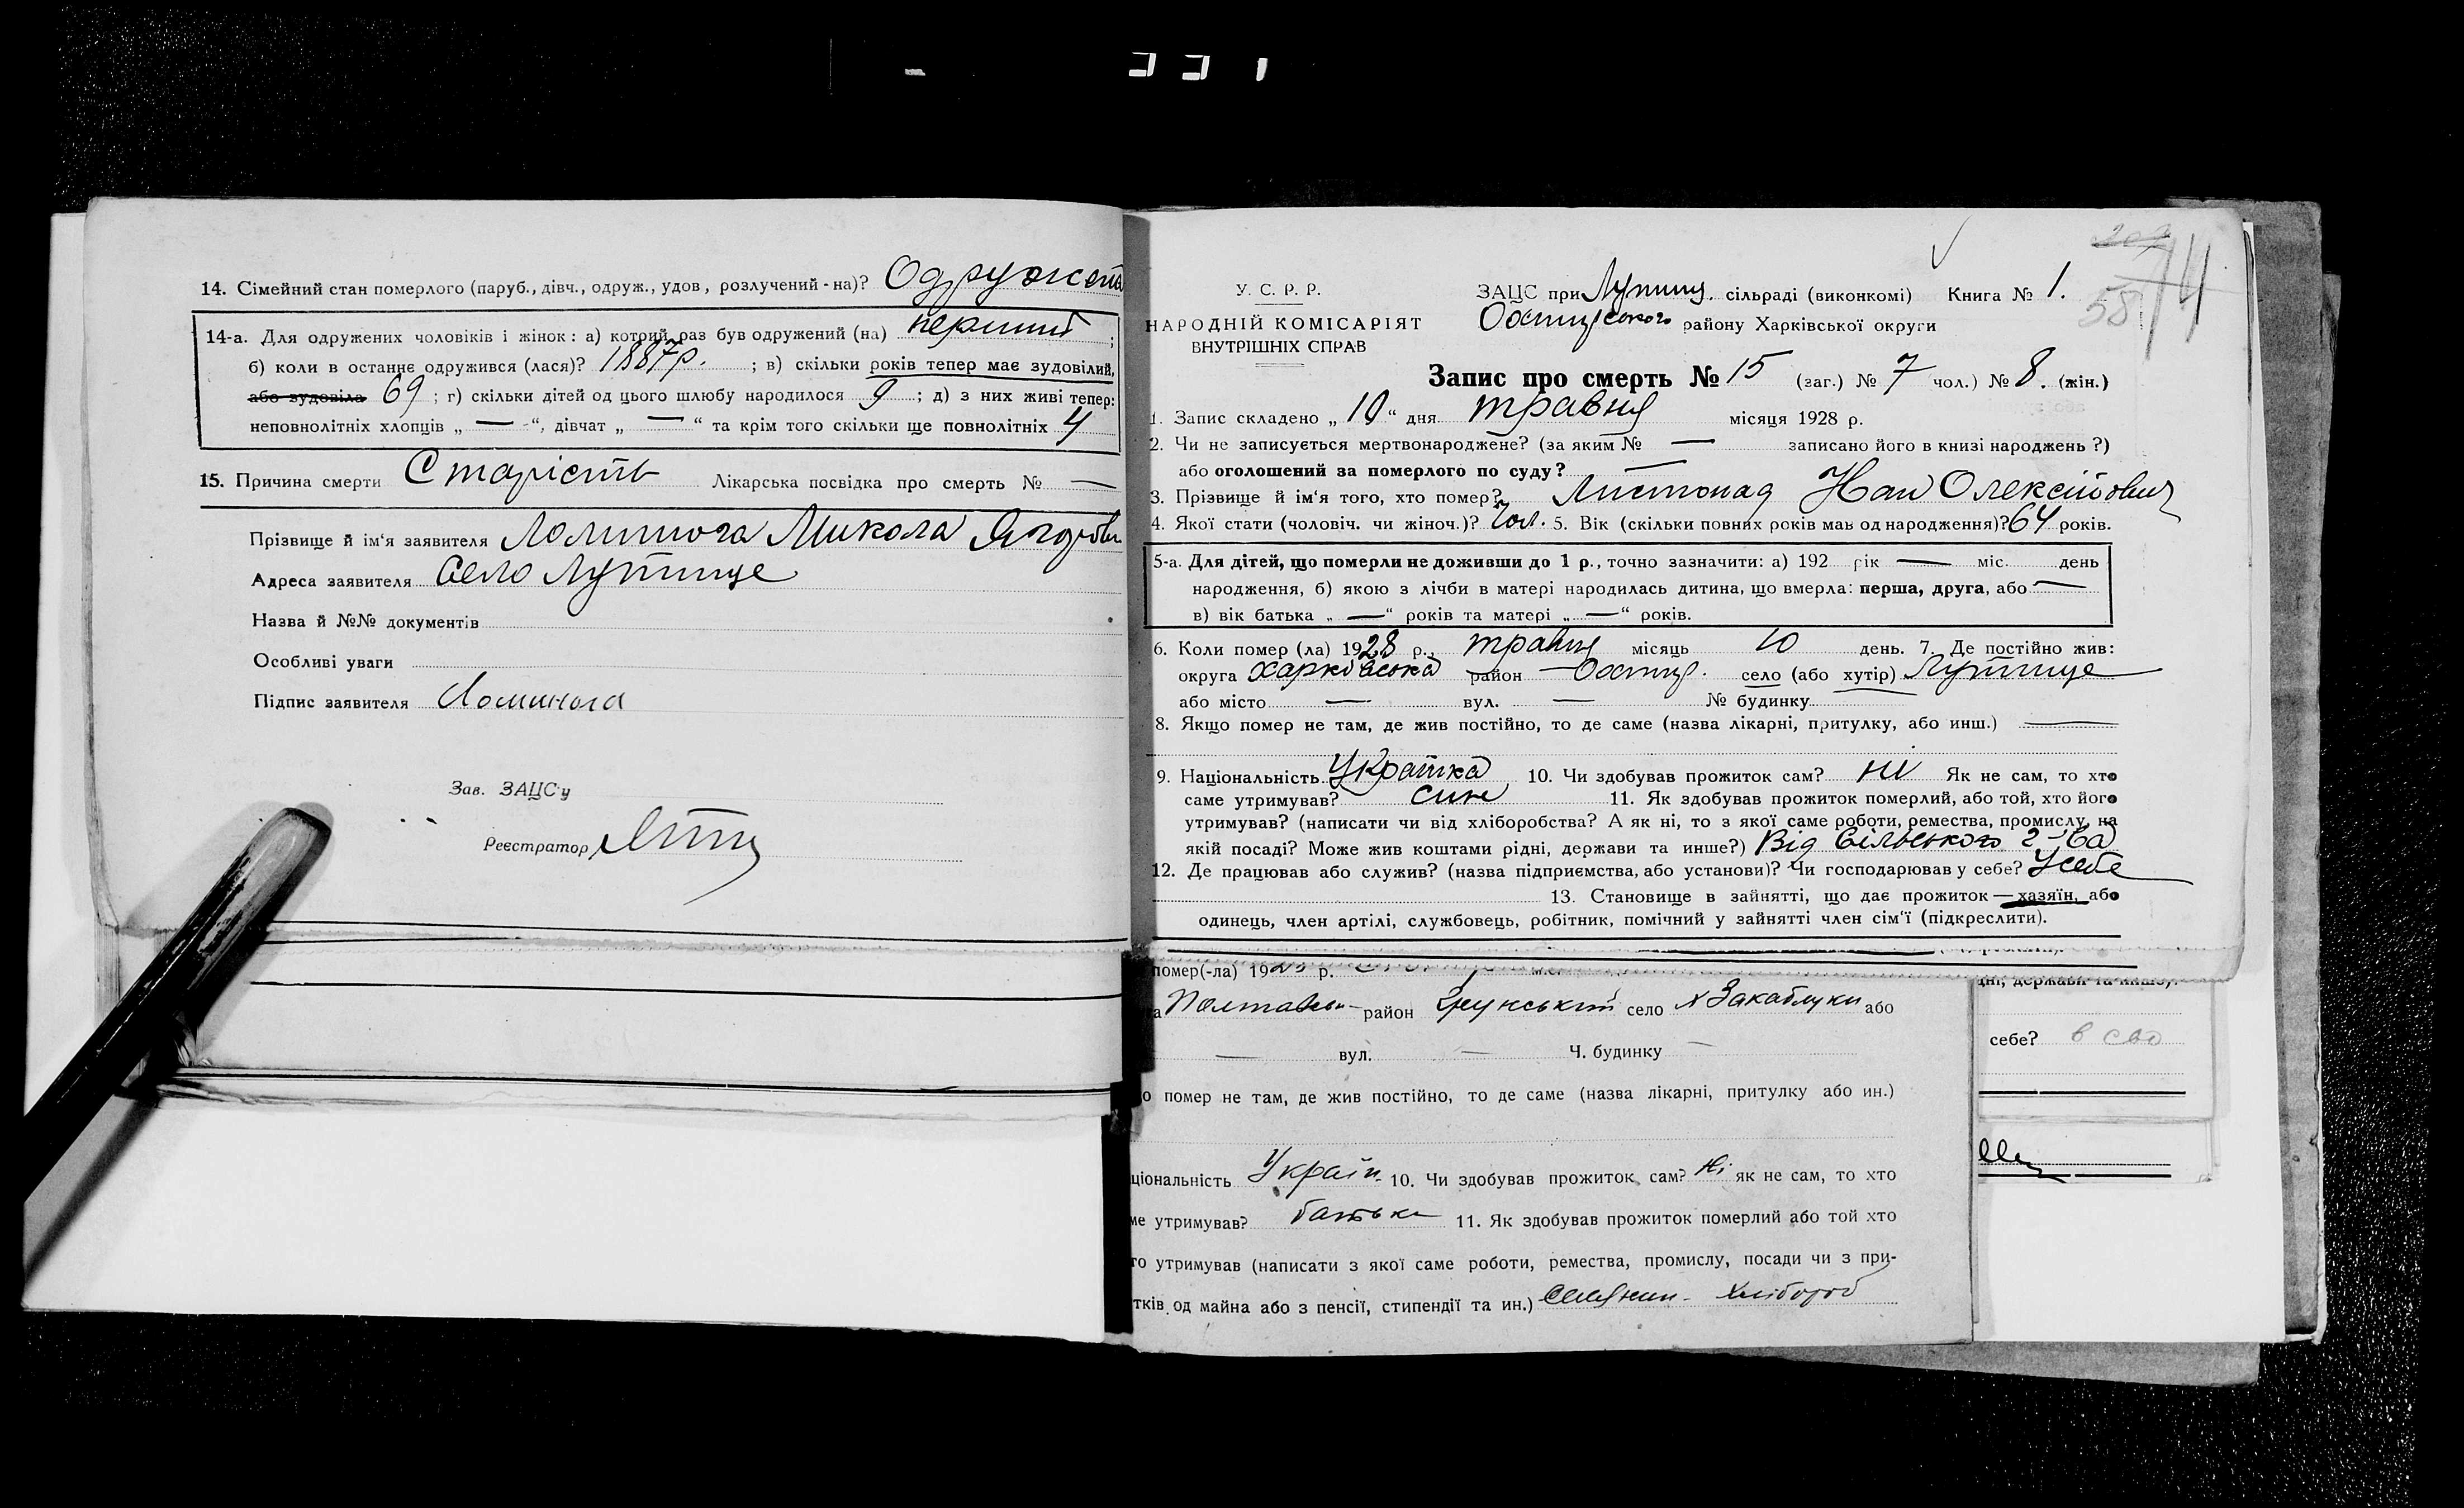 - 337
14. Сімейний стан померлого (паруб., дівч., одруж., удов, розлучений-на)? Одружен
14-а. Для одружених чоловіків і жінок: а) котрий раз був одружений (на) перший ;
б) коли в останнє одружився (лася)? 1887р. ; в) скільки років тепер має зудовілий,
або зудовіла 69 ; г) скільки дітей од цього шлюбу народилося 9 ; д) з них живі тепер:
неповнолітніх хлопців „ — “, дівчат „ — “ та крім того скільки ще повнолітніх 4
15. Причина смерти Старість Лікарська посвідка про смерть № —
Прізвище й ім'я заявителя Микола
Адреса заявителя село Лутище
Назва й №№ документів
Особливі уваги
Підпис заявителя
Зав. ЗАЦС'у
Реєстратор
У. С. Р. Р.
НАРОДНІЙ КОМІСАРІЯТ
ВНУТРІШНІХ СПРАВ
58 74
ЗАЦС при Лутищ. сільраді (виконкомі) Книга № 1.
Охтирського району Харківської округи
Запис про смерть № 15 (заг.) № 7 чол.) № 8. (жін.)
1. Запис складено „ 10 “ дня травня місяця 1928 р.
2. Чи не записується мертвонароджене? (за яким № — записано його в книзі народжень ?)
або оголошений за померлого по суду? —
3. Прізвище й ім'я того, хто помер? Листопад Олексійович
4. Якої стати (чоловіч. чи жіноч.)? Чол. 5. Вік (скільки повних років мав од народження)? 64 років.
5-а. Для дітей, що померли не доживши до 1 р., точно зазначити: а) 192 рік — міс. день
народження, б) якою з лічби в матері народилась дитина, що вмерла: перша, друга, або —
в) вік батька „ — “ років та матері „ — “ років.
6. Коли помер (ла) 1928 р., травня місяць 10 день. 7. Де постійно жив:
округа Харківська район Охтир. село (або хутір) Лутище
або місто — вул. — № будинку
8. Якщо помер не там, де жив постійно, то де саме (назва лікарні, притулку, або инш.) —
9. Національність 10. Чи здобував прожиток сам? ні Як не сам, то хто
саме утримував? син 11. Як здобував прожиток померлий, або той, хто його
утримував? (написати чи від хліборобства? А як ні, то з якої саме роботи, ремества, промислу, на
якій посаді? Може жив коштами рідні, держави та инше?) Від сільського г-ва
12. Де працював або служив? (назва підприємства, або установи)? Чи господарював у себе? У себе
13. Становище в зайнятті, що дає прожиток — хазяїн, або
одинець, член артілі, службовець, робітник, помічний у зайнятті член сім'ї (підкреслити).
помер(-ла) 192 р.
а Полтавськ район село х Закаблуки або
— вул. — Ч. будинку —
о помер не там, де жив постійно, то де саме (назва лікарні, притулку або ин.)
ціональність Україн. 10. Чи здобував прожиток сам? Ні як не сам, то хто
ме утримував? батьки 11. Як здобував прожиток померлий або той хто
го утримував (написати з якої саме роботи, ремества, промислу, посади чи з при-
тків од майна або з пенсії, стипендії та ин.) Селянин- Хлібороб
дні, держави та инше).
себе? в сво